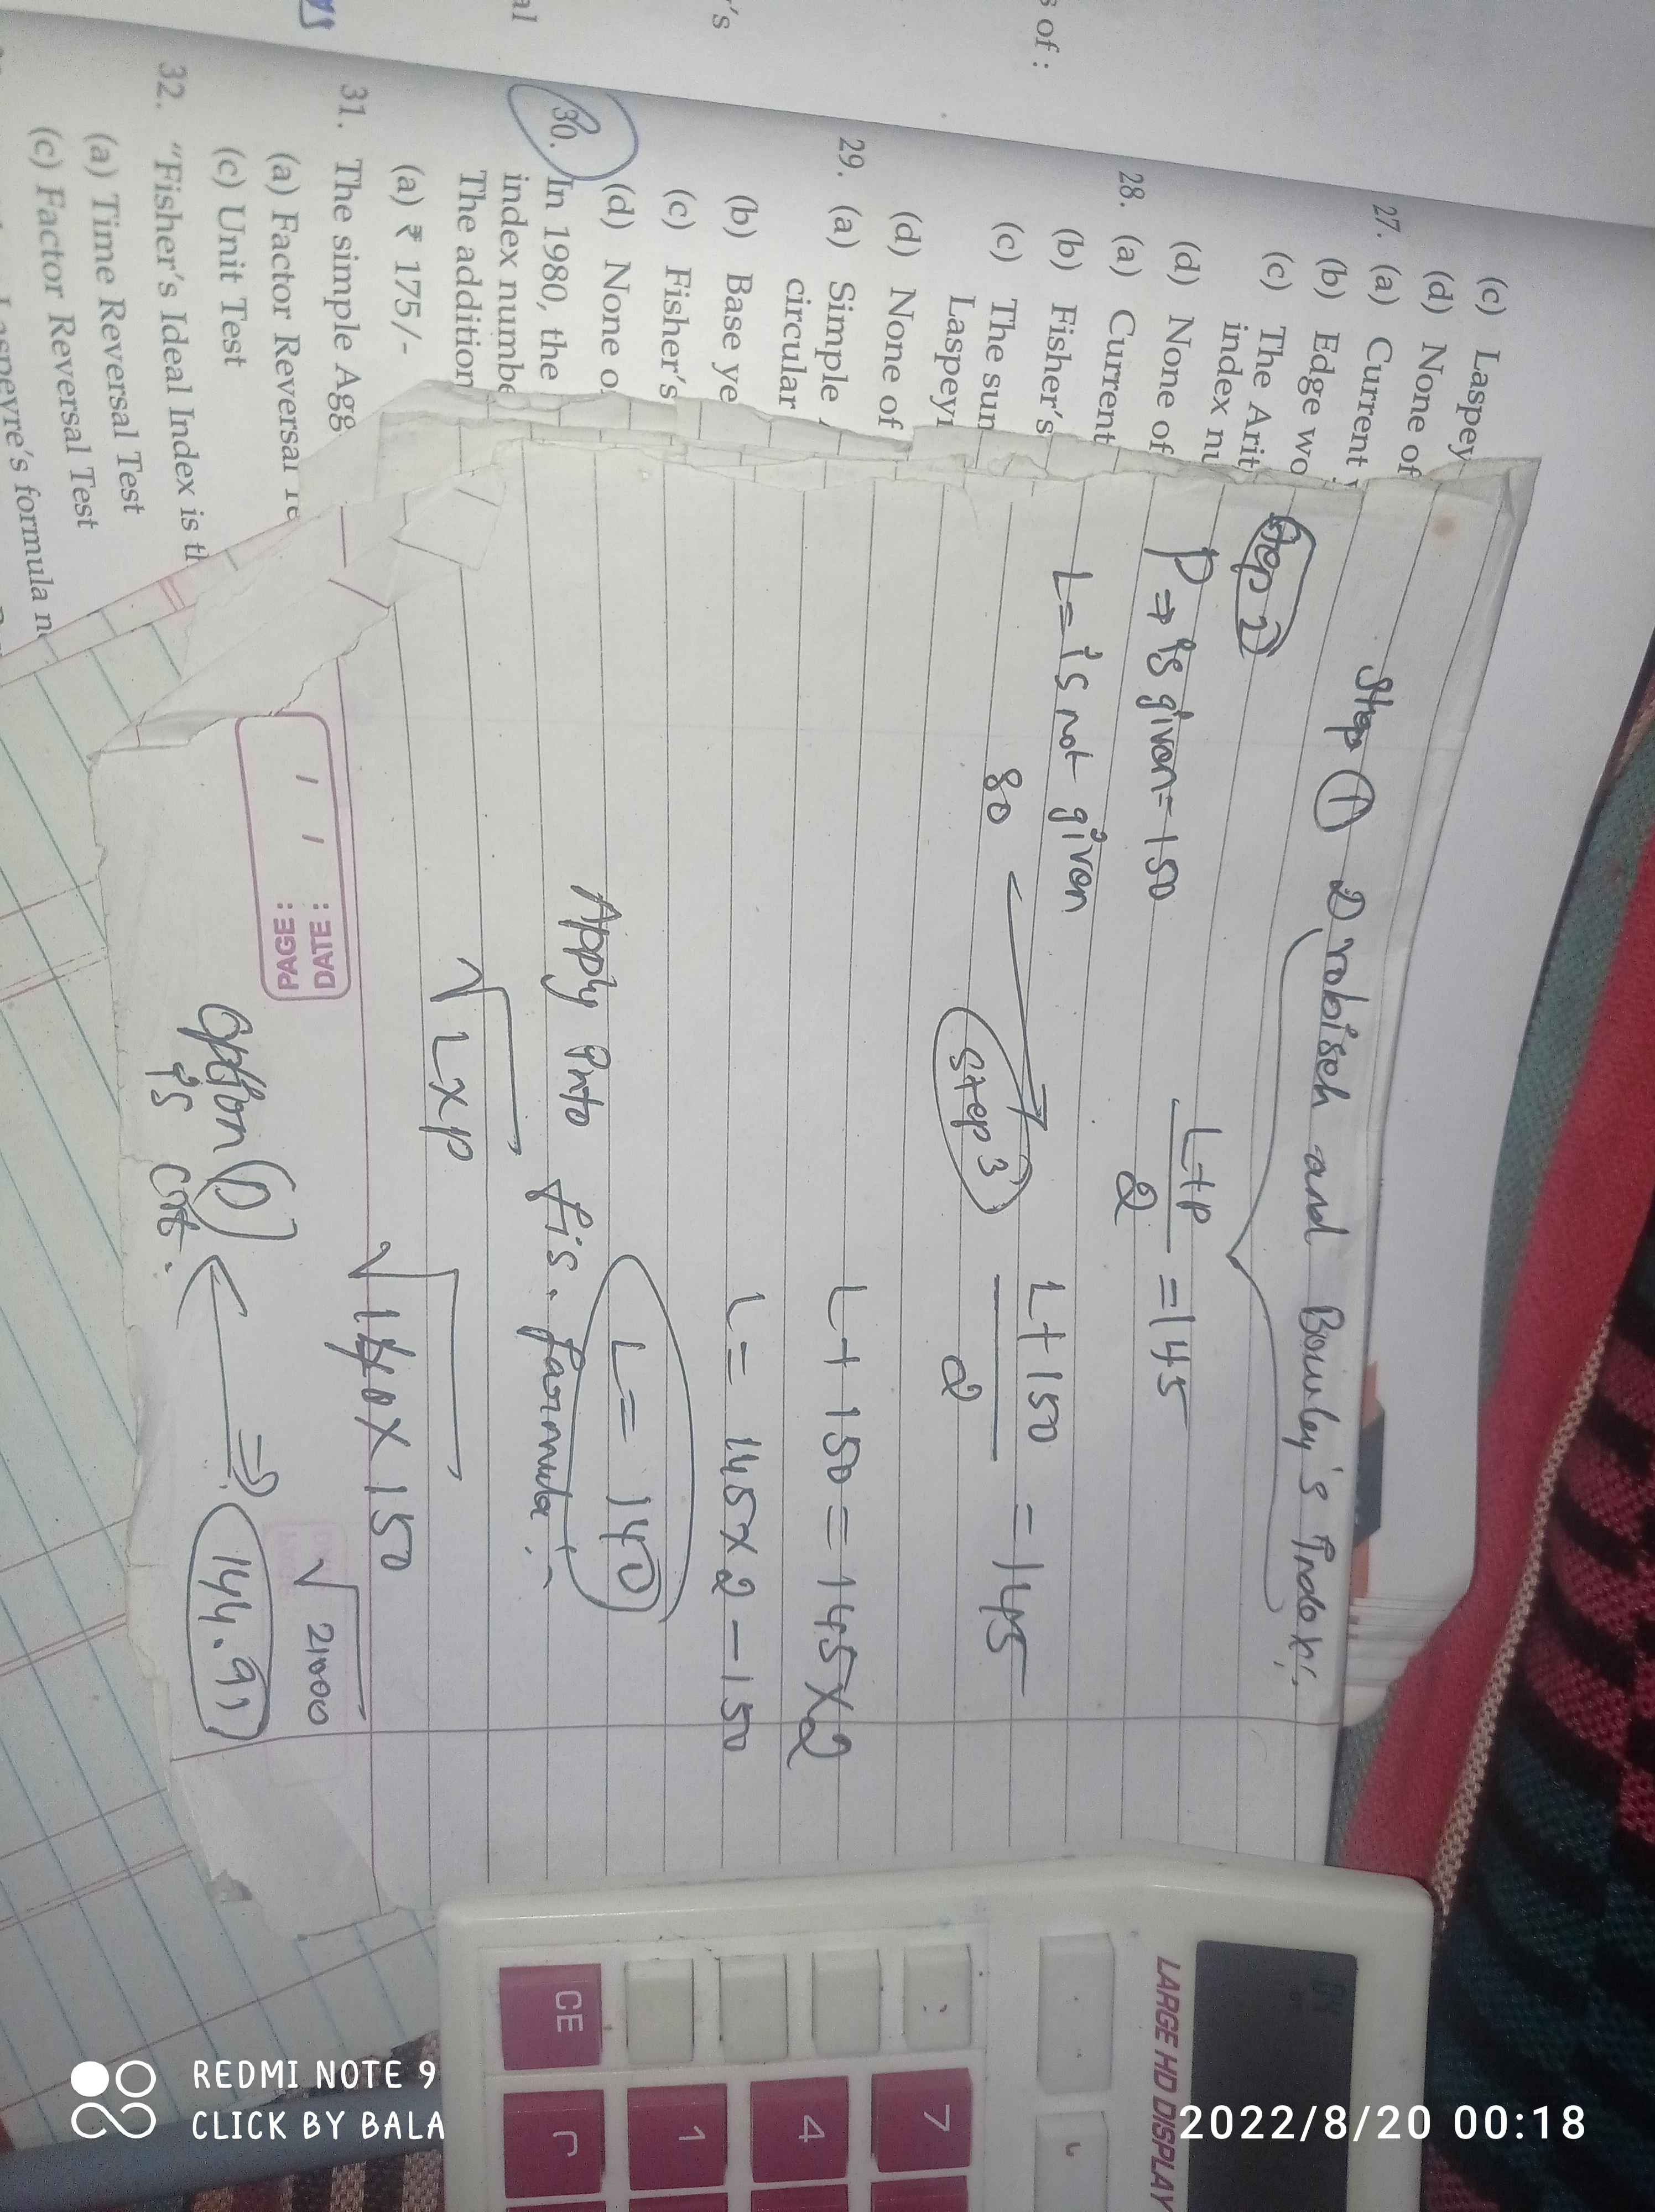 s of :
's
al
(c) Laspey
(d) None of
27. (a) Current y
(b) Edge wo
(c) The Arit
index nu
(d) None of
28. (a) Current
(b) Fisher's
(c) The sum
Laspeyr
(d) None of
29. (a) Simple
circular
(b) Base ye
(c) Fisher's
(d) None o
30. In 1980, the
index numbe
The addition
(a) ₹ 175/-
31. The simple Agg
(a) Factor Reversal Te
(c) Unit Test
32. "Fisher's Ideal Index is th
(a) Time Reversal Test
(c) Factor Reversal Test
Laspeyre's formula n
Step 1 Drobisch and Bowley's Index:
Step 2
L+P
2
=145
P ⇒ is given = 150
L = is not given
so
Step 3
L+150
2
=145
L + 150 = 145 X 2
L = 145 x 2 - 150
L = 140
Apply into fis. formula:-
√LXP
√140 X 150
√21000
option (D) ⇒ 144.91
is crt.
DATE : / /
PAGE :
LARGE HD DISPLAY
CE
7
4
1
REDMI NOTE 9
CLICK BY BALA
2022/8/20 00:18